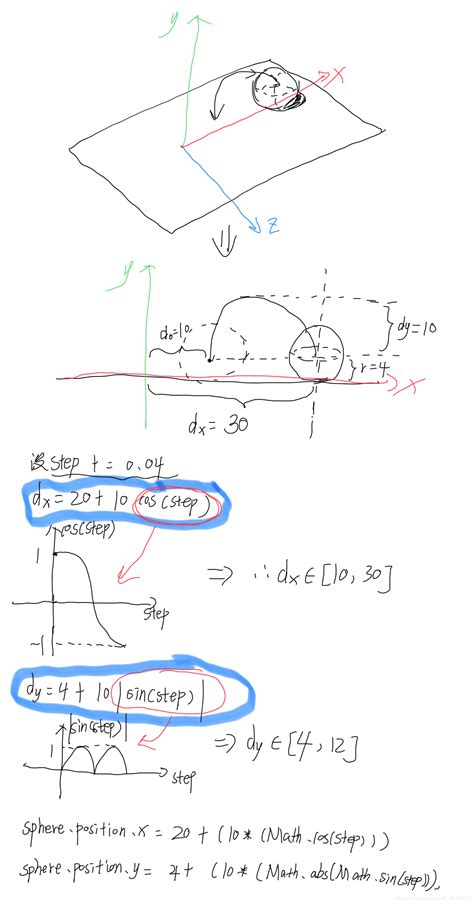 y
x
z
y
d₀=10
dy=10
r=4
x
dx = 30
设step += 0.04
dx = 20 + 10 cos(step)
cos(step)
1
-1
step
=> ∴dx∈[10, 30]
dy = 4 + 10 |sin(step)|
|sin(step)|
1
step
=> dy∈[4, 12]
sphere.position.x = 20 + (10* (Math.cos(step)))
sphere.position.y = 4 + (10* (Math.abs(Math.sin(step))),